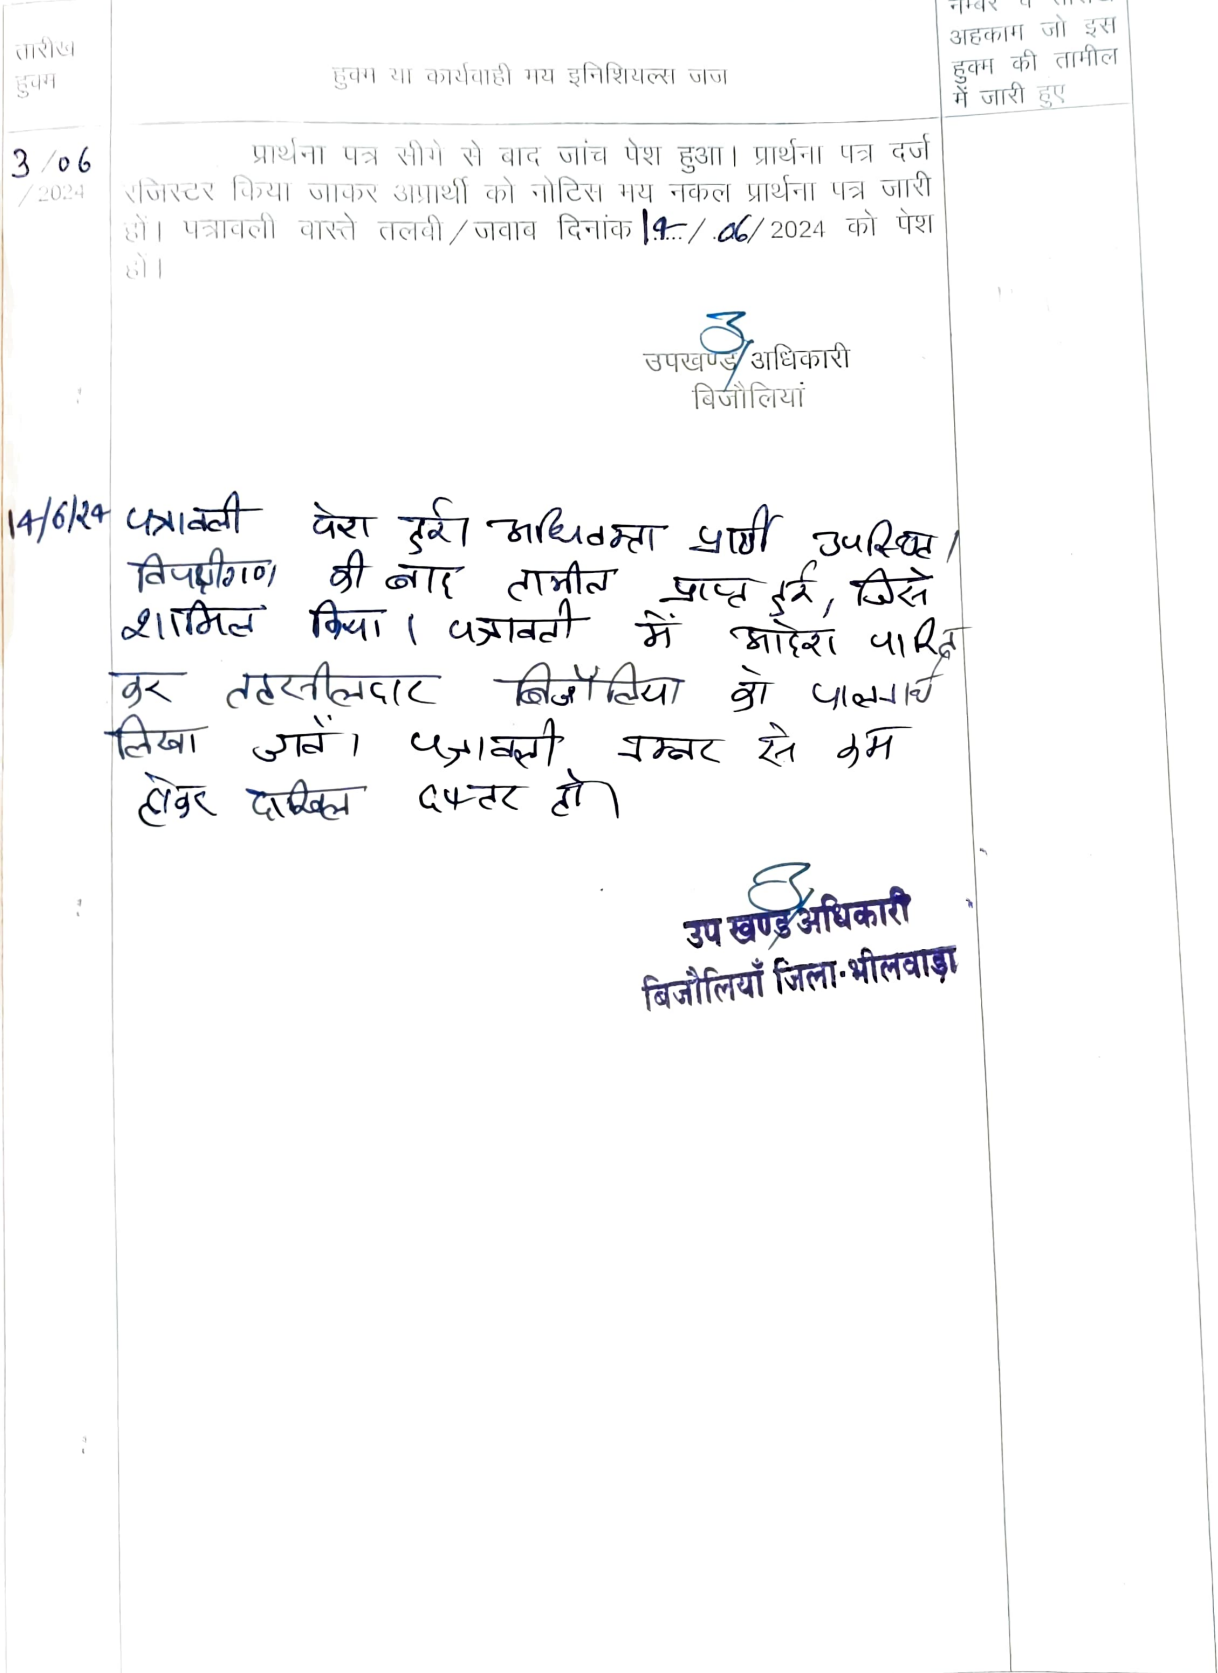 तारीख
हुक्म
हुक्म या कार्यवाही मय इनिशियल्स जज
नम्बर व तारीख
अहकाम जो इस
हुक्म की तामील
में जारी हुए
3/06
/2024
प्रार्थना पत्र सीगे से बाद जांच पेश हुआ। प्रार्थना पत्र दर्ज
रजिस्टर किया जाकर अप्रार्थी को नोटिस मय नकल प्रार्थना पत्र जारी
हों। पत्रावली वास्ते तलवी/जवाब दिनांक 14/06/2024 को पेश
हों।
उपखण्ड अधिकारी
बिजौलियां
14/6/24 पत्रावली पेश हुई। अधिवक्ता प्रार्थी उपस्थित।
विपक्षीगण की बाद तामील प्राप्त हुई, जिसे
शामिल किया। पत्रावली में आदेश पारित
कर तहसीलदार बिजौलिया को पालनार्थ
लिखा जावें। पत्रावली नम्बर से कम
होकर दाखिल दफ्तर हो।
उप खण्ड अधिकारी
बिजौलियाँ जिला-भीलवाड़ा